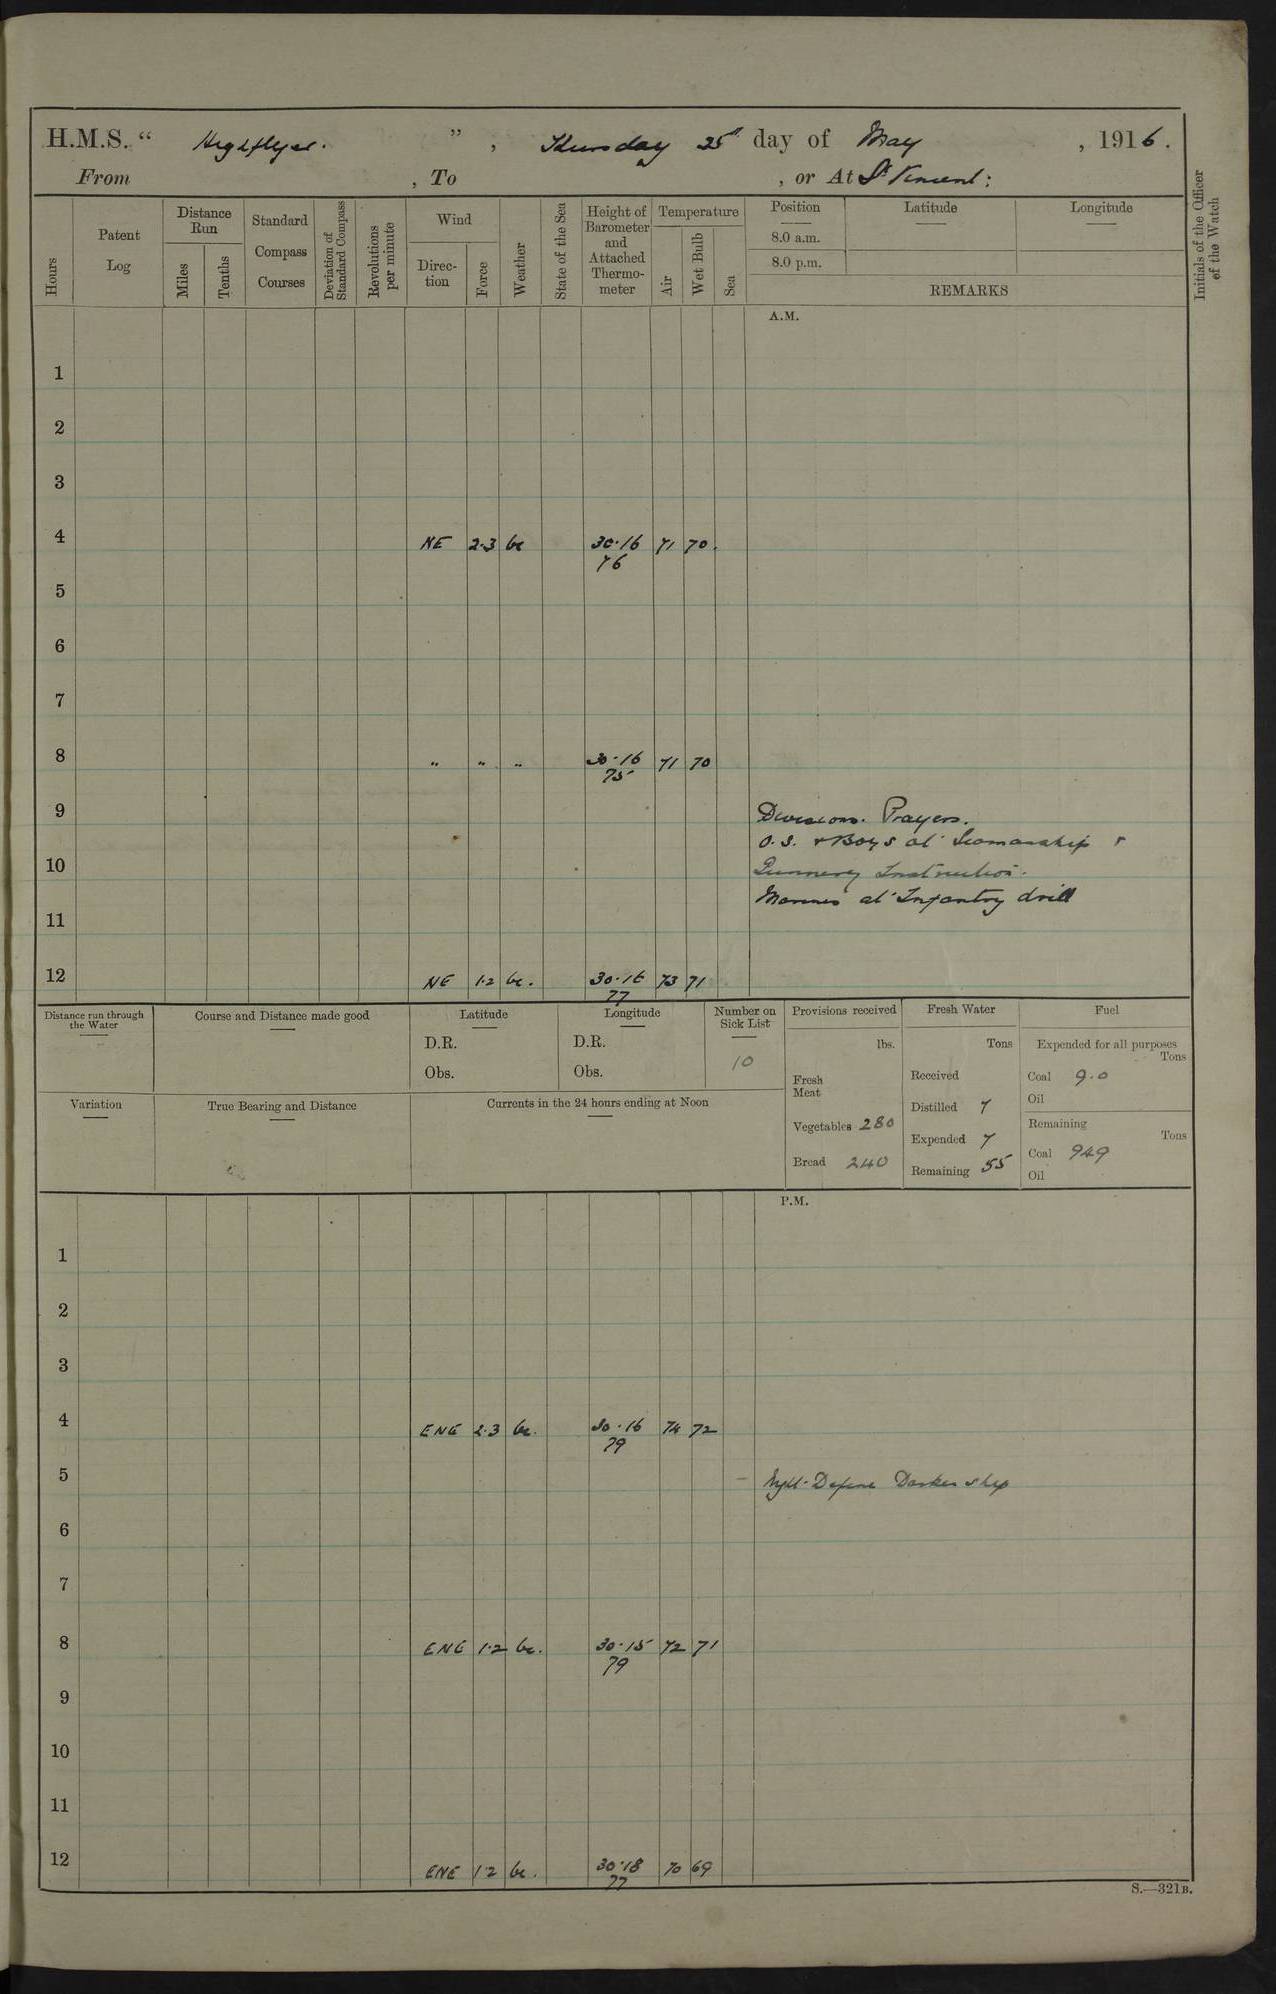 H.M.S. “ Highflyer. ” , Thursday 25th day of May , 1916.
From , To , or At St Vincent:
Hours
Patent Log
Distance Run
Miles
Tenths
Standard Compass Courses
Deviation of Standard Compass
Revolutions per minute
Wind
Direc-tion
Force
Weather
State of the Sea
Height of Barometer and Attached Thermo-meter
Temperature
Air
Wet Bulb
Sea
Position
8.0 a.m.
8.0 p.m.
Latitude
Longitude
REMARKS
Initials of the Officer of the Watch
A.M.
1
2
3
4 NE 2·3 bc 30·16 71 70.
76
5
6
7
8 „ „ „ 30·16 71 70
75
9 Divisions. Prayers.
O.S. & Boys at Seamanship &
10 Gunnery Instruction.
Marines at Infantry drill
11
12 NE 1·2 bc. 30·16 73 71
77
Distance run through the Water
Course and Distance made good
Latitude
D.R.
Obs.
Longitude
D.R.
Obs.
Number on Sick List
10
Provisions received
lbs.
Fresh Meat
Vegetables 280
Bread 240
Fresh Water
Tons
Received
Distilled 7
Expended 7
Remaining 55
Fuel
Expended for all purposes
Tons
Coal 9.0
Oil
Remaining
Tons
Coal 949
Oil
Variation
True Bearing and Distance
Currents in the 24 hours ending at Noon
P.M.
1
2
3
4 ENE 2·3 bc. 30·16 74 72
79
5 – Night Defence Darken ship
6
7
8 ENE 1·2 bc. 30·15 72 71
79
9
10
11
12 ENE 1·2 bc. 30·18 70 69
77
S.—321B.